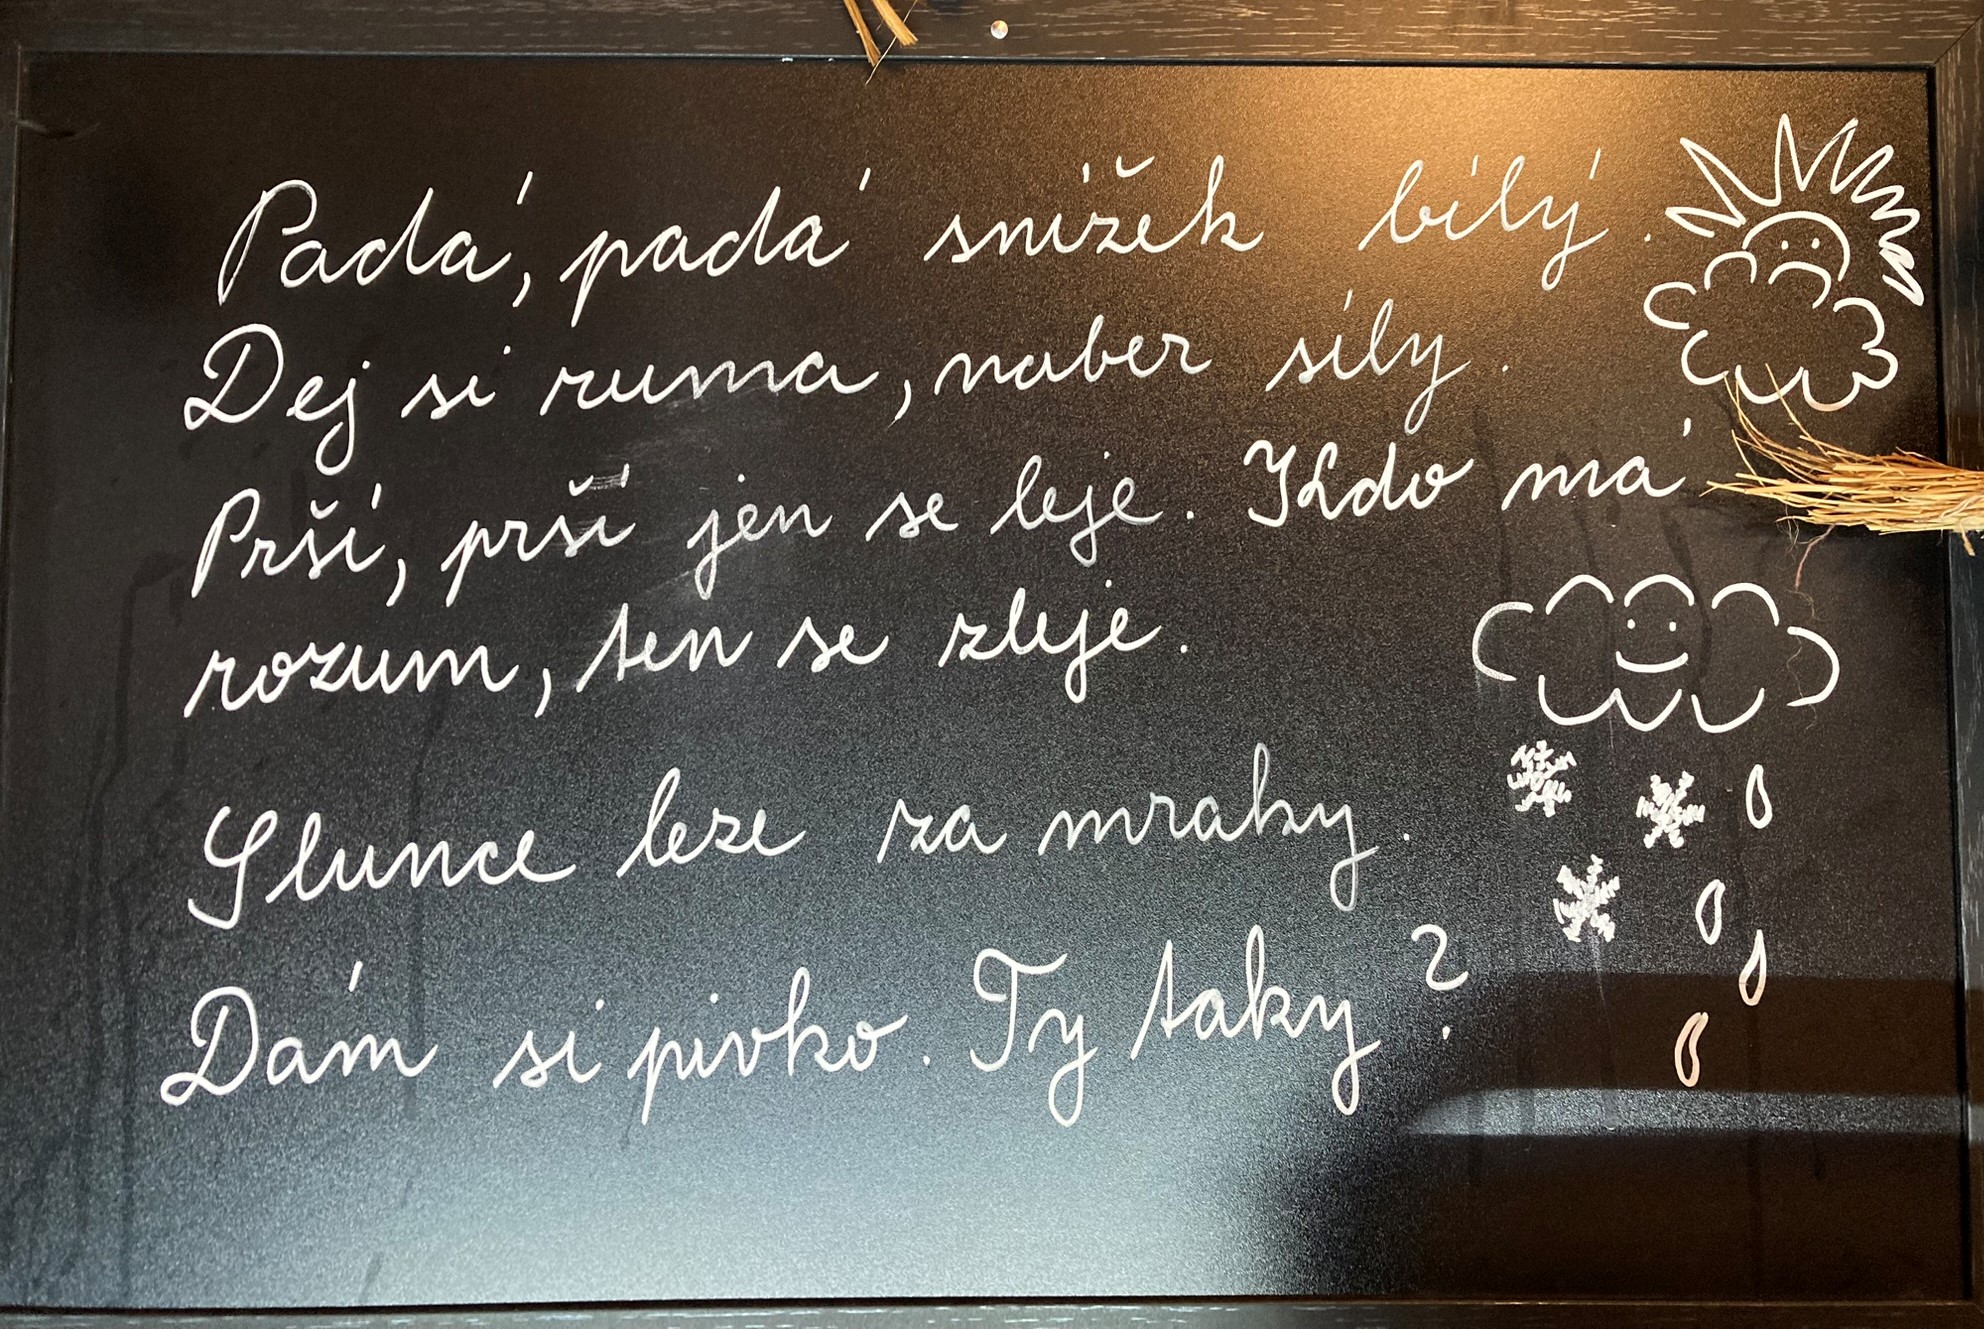 Padá, padá snížek bílý.
Dej si ruma, naber síly.
Prší, prší jen se leje. Kdo má
rozum, ten se zleje.
Slunce leze za mraky.
Dám si pivko. Ty taky?